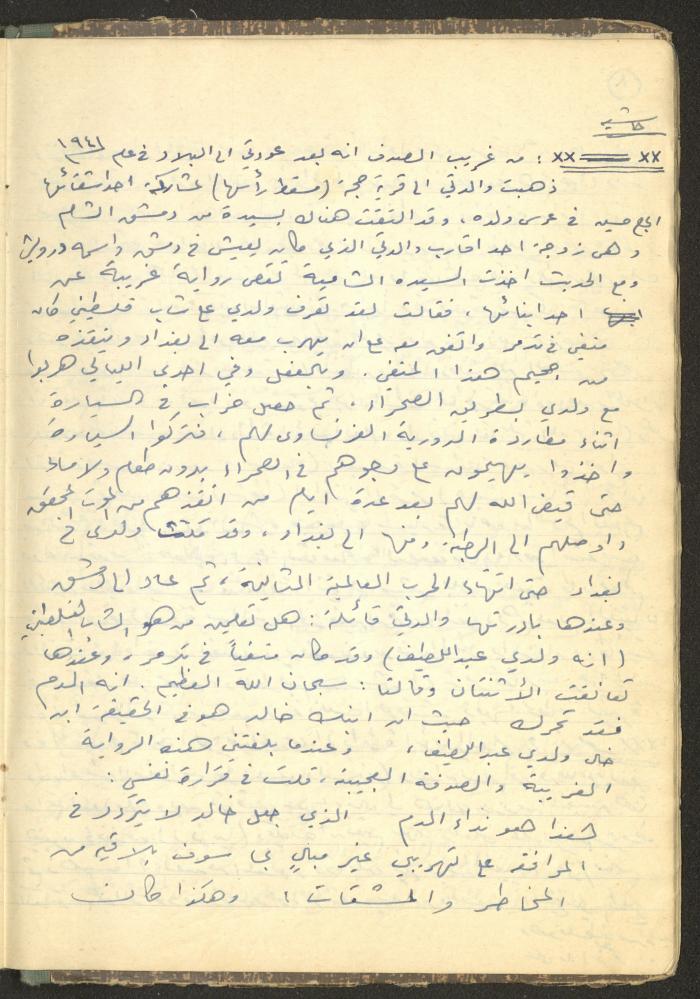 حاشية
×× ══ ×× : من غريب الصدف انه بعد عودتي الى البلاد في عام ١٩٤١
ذهبت والدتي الى قرية حجة (مسقط رأسها) لمشاركة احد اشقائها
الحج حسين في عرس ولده، وقد التقت هناك بسيدة من دمشق الشام
وهي زوجة احد اقارب والدتي الذي كان يعيش في دمشق واسمه درويش
ومع الحديث اخذت السيده الشامية تقص رواية غريبة عن
احد ابنائها، فقالت لقد تعرف ولدي على شاب فلسطيني كان
منفي في تدمر واتفق معه على ان يهرب معه الى بغداد وينقذه
من جحيم هذا المنفى. وبالفعل وفي احدى الليالي هربوا
مع ولدي بطريق الصحراء، ثم حصل خراب في السيارة
اثناء مطاردة الدورية الفرنساوي لهم، فتركوا السيارة
واخذوا يهيمون على وجوههم في الصحراء بدون طعام ولا ماء
حتى قيض الله لهم بعد عدة ايام من انقذهم من الموت المحقق
واوصلهم الى الرطبة ومنها الى بغداد، وقد ولدي في
بغداد حتى انتهاء الحرب العالمية الثانية، ثم عاد الى دمشق
وعندها بادرتها والدتي قائلة: هل تعلمين من هو الشاب الفلسطيني
(انه ولدي عبداللطيف) وقد كان منفياً في تدمر، وعندها
تعانقت الأثنتان وقالتا: سبحان الله العظيم. انه الدم
فقد تحرك حيث ان ابنك خالد هو في الحقيقة ابن
خال ولدي عبداللطيف، وعندما بلغتني هذه الرواية
الغريبة والصدفة العجيبة، قلت في قرارة نفسي:
هذا هو نداء الدم الذي جعل خالد لا يتردد في
الموافقة على تهريبي غير مبالٍ بما سوف يلاقيه من
المخاطر والمشقات !! وهكذا كان